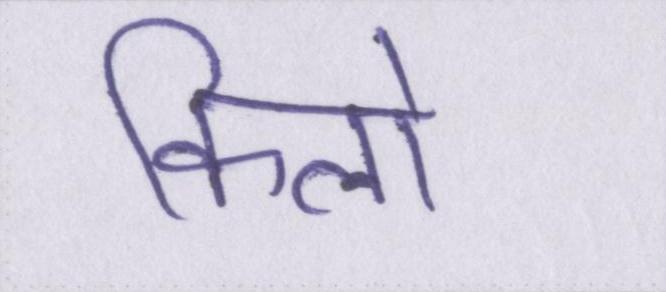 किलो